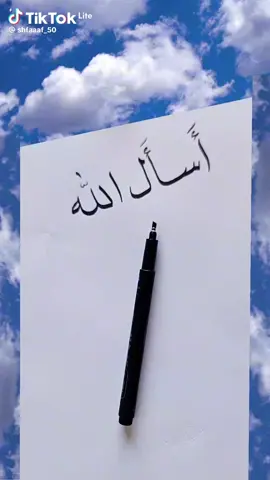 TikTok Lite
@shfaaaf_50
أَسأَل الله